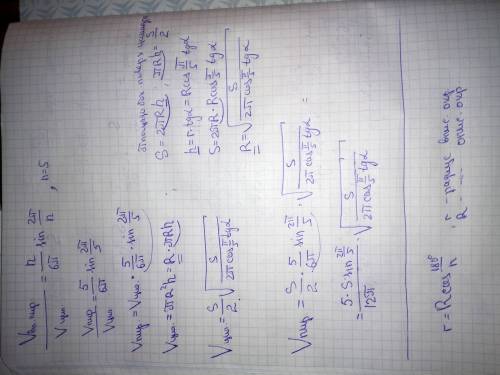 Vпир / Vцил = n/6π sin 2π/n , n=5
Vпир / Vцил = 5/6π · sin 2π/5
Vпир = Vцил · 5/6π · sin 2π/5
Vцил = πR²h = R · πRh
Vцил = S/2 · √(S / 2π cos π/5 tgα)
Vпир = S/2 · 5/6π · sin 2π/5 · √(S / 2π cos π/5 tgα) =
= 5·S sin 2π/5 / 12π · √(S / 2π cos π/5 tgα)
площадь бок поверх цилиндра
S = 2πRh, πRh = S/2
h = r·tgα = R cos π/5 tgα
S = 2πR · R cos π/5 tgα
R = √(S / 2π cos π/5 tgα)
r = R cos 180°/n , r - радиус впис окр
R - — " — опис. окр